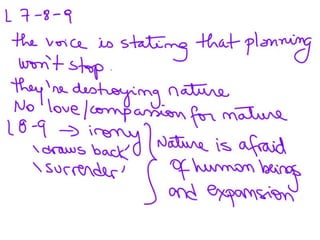 L 7-8-9
the voice is stating that planning
won't stop.
they're destroying nature
No love/compassion for nature
L 8-9 → irony
'draws back'
'surrender'
Nature is afraid
of human beings
and expansion